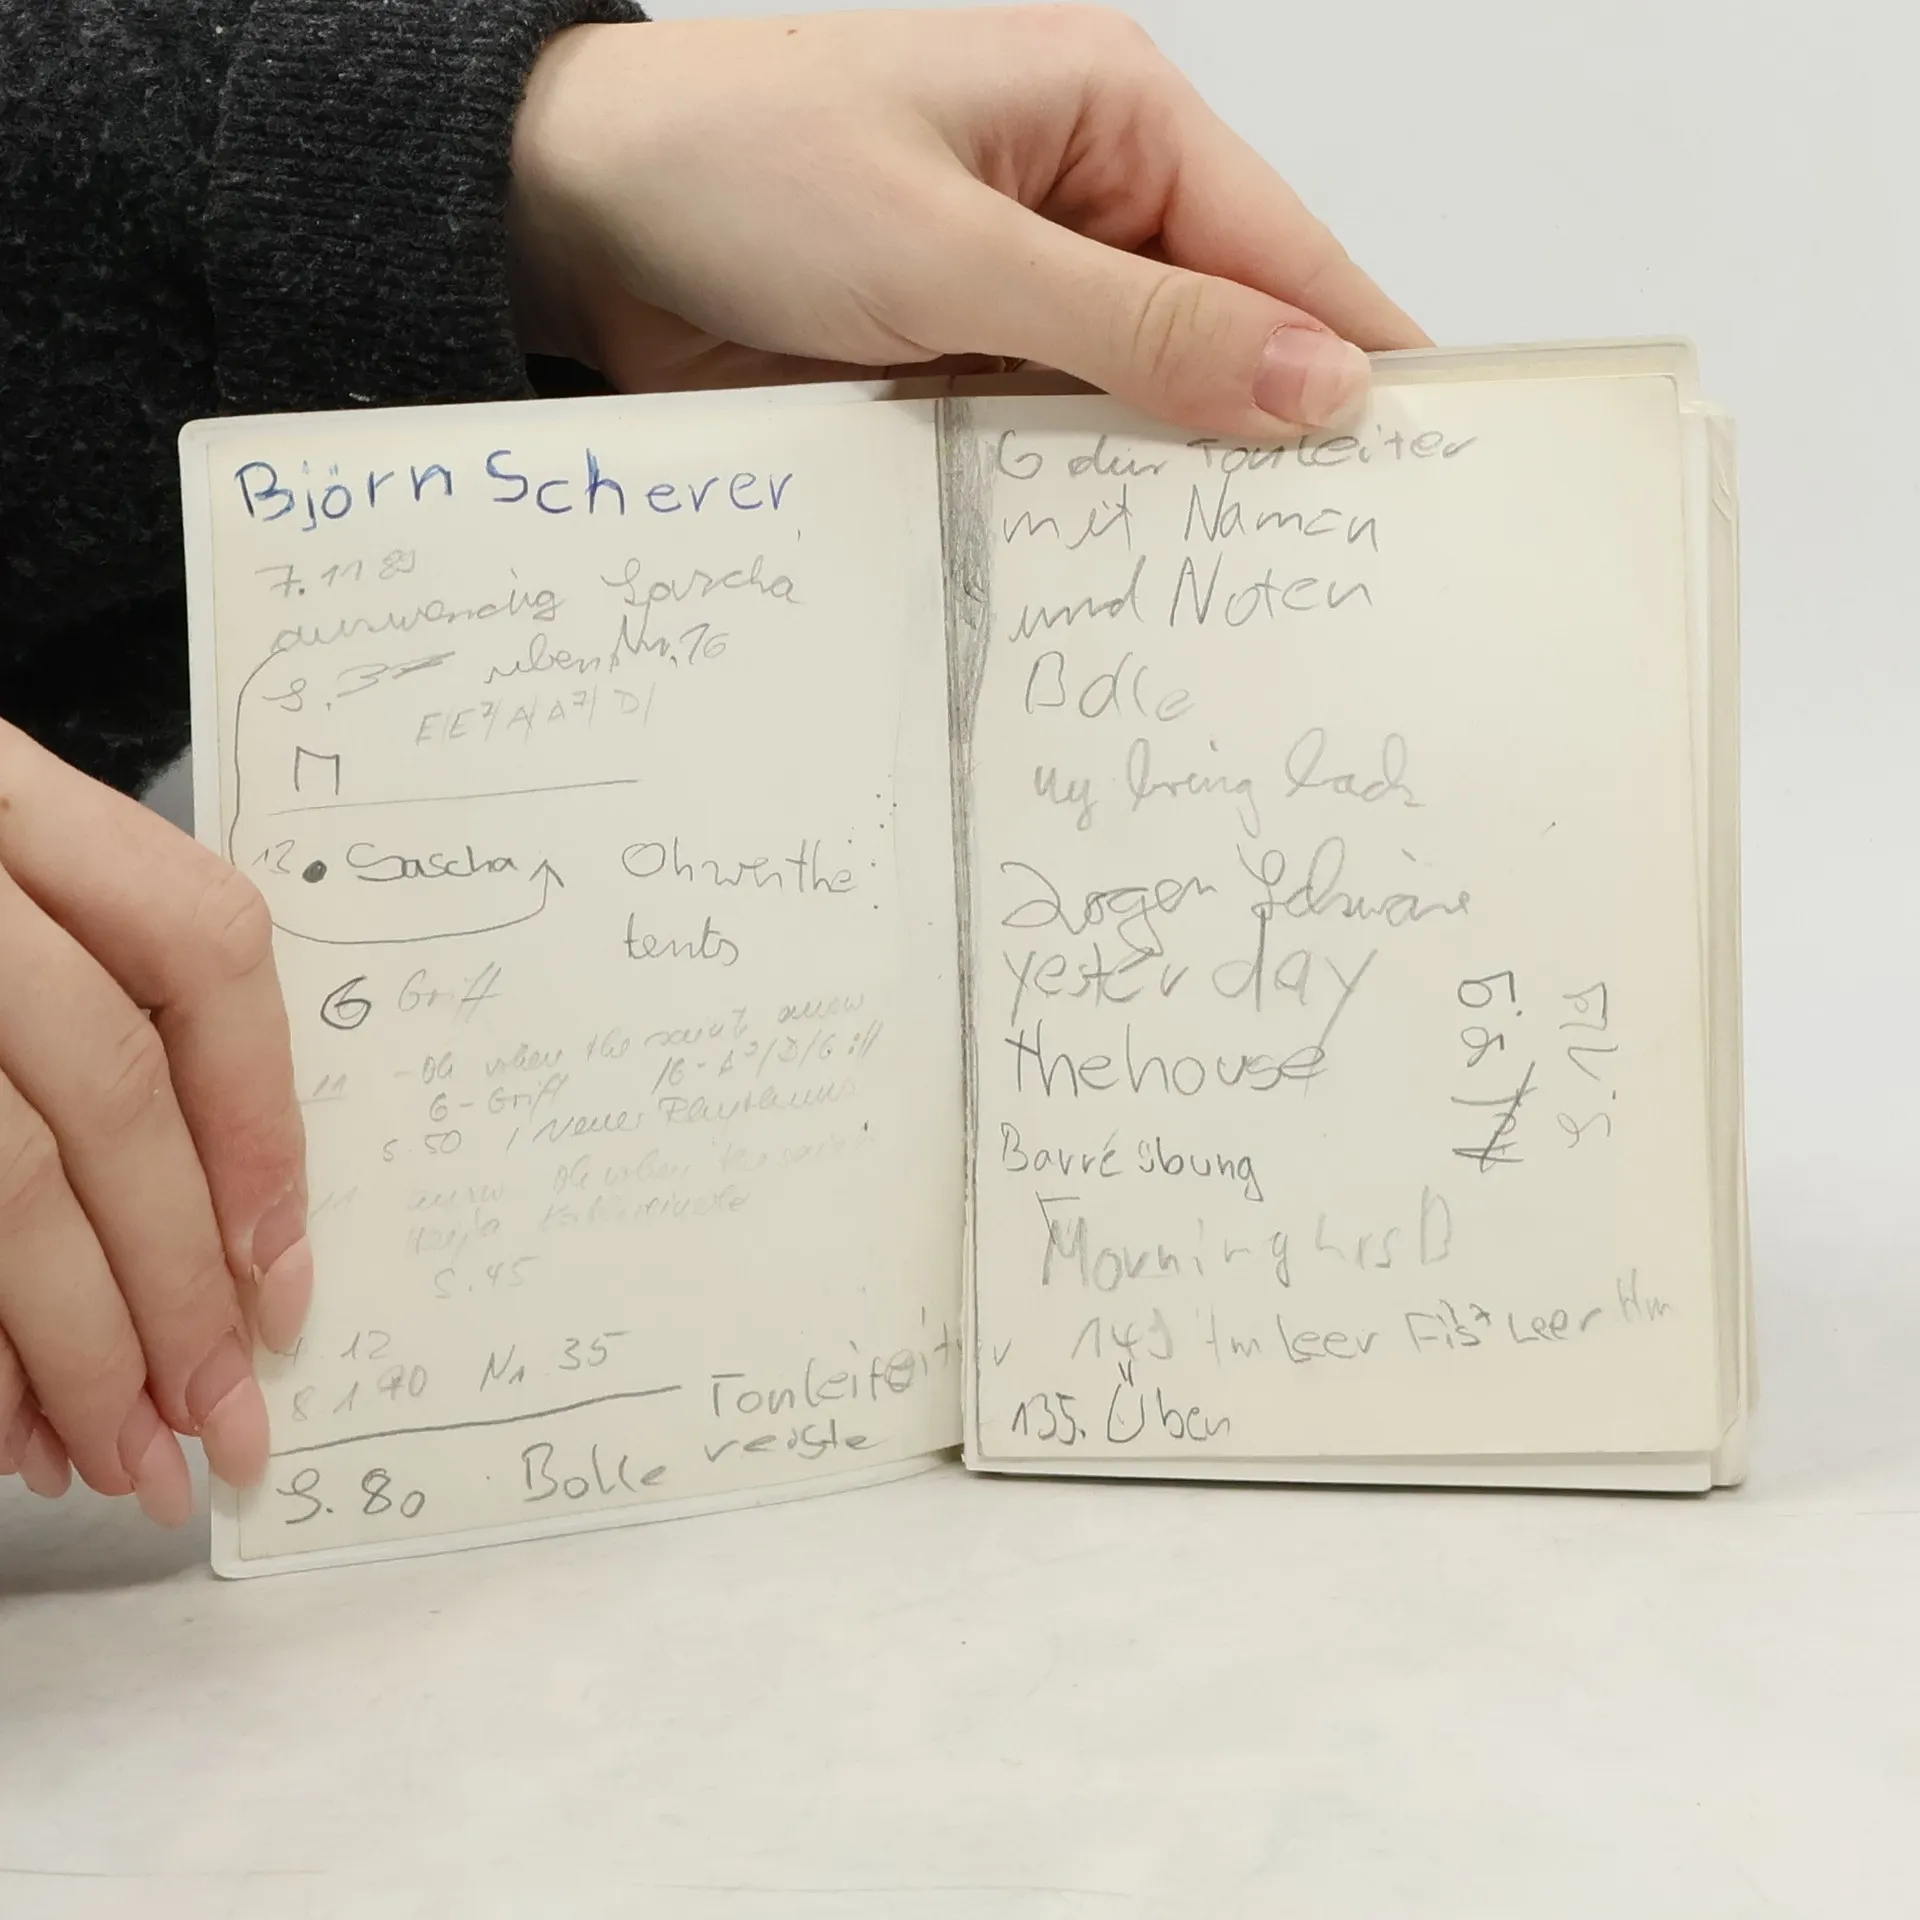 Björn Scherer
7. 11 89
auswendig Sascha
S. üben Nr. 16
E/E7/A/A7/D/
13. Sascha Ohwenthe
tents
G Griff
11 - Oh when the saint ausw
G - Griff /G - A7/D/G :||
S. 50 / Neuer Rhythmus
11 ausw Oh when the saint
S. 45
4. 12
8 1 90 Nr. 35
Tonleiter
S. 80 Bolle reiste
G dur Tonleiter
mit Namen
und Noten
Bolle
my bring back
yesterday
thehouse
Barré übung
Morning hrs D
149 Hm Leer Fis7 Leer Hm
135. Üben